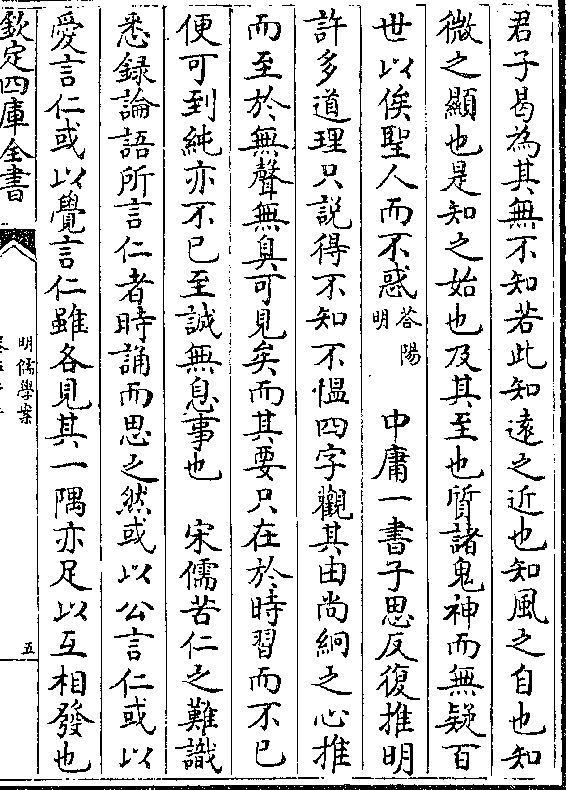 君子曷為其無不知若此知遠之近也知風之自也知
微之顯也是知之始也及其至也質諸鬼神而無疑百
世以俟聖人而不惑答陽明　中庸一書子思反復推明
許多道理只說得不知不慍四字觀其由尚絅之心推
而至於無聲無臭可見矣而其要只在於時習而不已
便可到純亦不已至誠無息事也　宋儒苦仁之難識
悉録論語所言仁者時誦而思之然或以公言仁或以
愛言仁或以覺言仁雖各見其一隅亦足以互相發也
欽定四庫全書
明儒學案
五